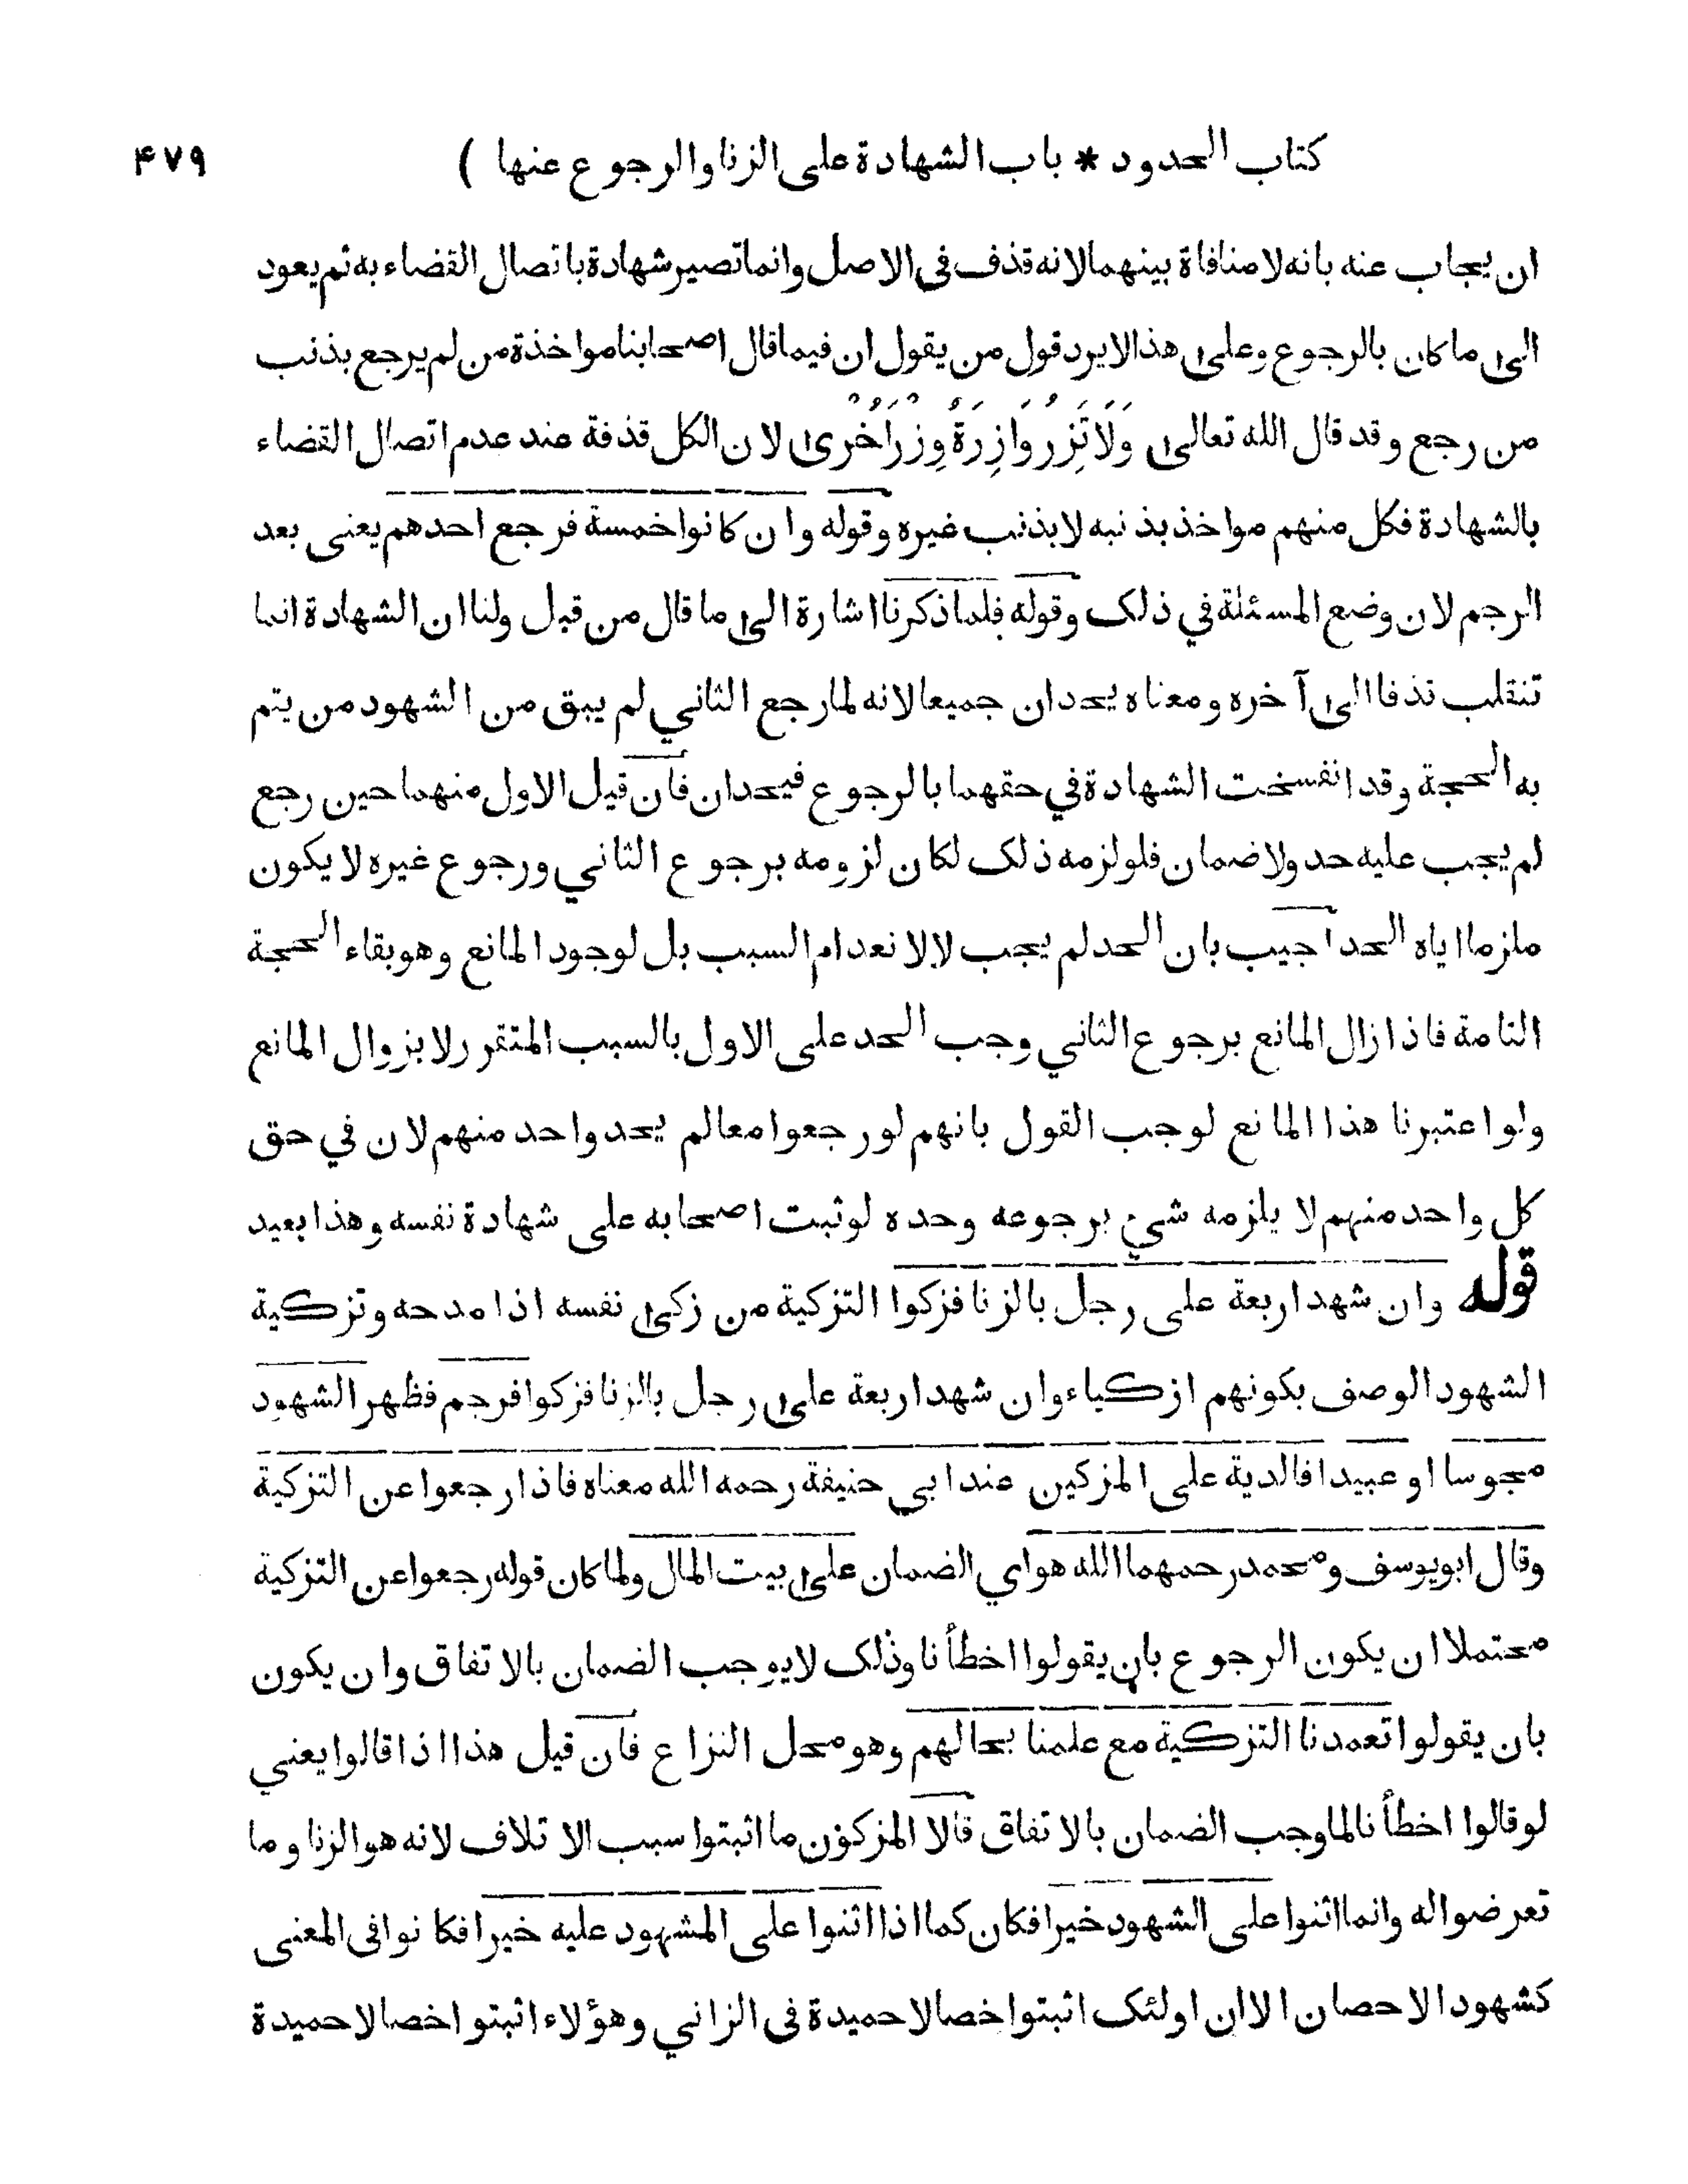 كتاب الحدود * باب الشهادة على الزنا والرجوع عنها ) ۴۷۹
ان يجاب عنه بانه لا منافاة بينهما لانه قذف فى الاصل وانما تصير شهادة باتصال القضاء به ثم يعود
الى ما كان بالرجوع وعلى هذا لا يرد قول من يقول ان فيما قال اصحابنا مواخذة من لم يرجع بذنب
من رجع وقد قال الله تعالى وَلَا تَزِرُ وَازِرَةٌ وِزْرَ أُخْرىٰ لان الكل قذفة عند عدم اتصال القضاء
بالشهادة فكل منهم مواخذ بذنبه لا بذنب غيره وقوله وان كانوا خمسة فرجع احدهم يعنى بعد
الرجم لان وضع المسئلة في ذلك وقوله فلما ذكرنا اشارة الى ما قال من قبل ولنا ان الشهادة انما
تنقلب قذفا الى آخره ومعناه يحدان جميعا لانه لما رجع الثاني لم يبق من الشهود من يتم
به الحجة وقد انفسخت الشهادة في حقهما بالرجوع فيحدان فان قيل الاول منهما حين رجع
لم يجب عليه حد ولا ضمان فلو لزمه ذلك لكان لزومه برجوع الثاني ورجوع غيره لا يكون
ملزما اياه الحد أجيب بان الحد لم يجب لا لانعدام السبب بل لوجود المانع وهو بقاء الحجة
التامة فاذا زال المانع برجوع الثاني وجب الحد على الاول بالسبب المتقرر لا بزوال المانع
ولو اعتبرنا هذا المانع لوجب القول بانهم لو رجعوا معا لم يحد واحد منهم لان في حق
كل واحد منهم لا يلزمه شيء برجوعه وحده لو ثبت اصحابه على شهادة نفسه وهذا بعيد
قوله وان شهد اربعة على رجل بالزنا فزكوا التزكية من زكى نفسه اذا مدحه وتزكية
الشهود الوصف بكونهم ازكياء وان شهد اربعة على رجل بالزنا فزكوا فرجم فظهر الشهود
مجوسا او عبيدا فالدية على المزكين عند ابى حنيفة رحمه الله معناه فاذا رجعوا عن التزكية
وقال ابو يوسف ومحمد رحمهما الله هو اي الضمان على بيت المال ولما كان قوله رجعوا عن التزكية
محتملا ان يكون الرجوع بان يقولوا اخطأنا وذلك لا يوجب الضمان بالاتفاق وان يكون
بان يقولوا تعمدنا التزكية مع علمنا بحالهم وهو محل النزاع فان قيل هذا اذا قالوا يعني
لو قالوا اخطأنا لما وجب الضمان بالاتفاق قالا المزكون ما اثبتوا سبب الاتلاف لانه هو الزنا وما
تعرضوا له وانما اثنوا على الشهود خيرا فكان كما اذا اثنوا على المشهود عليه خيرا فكانوا فى المعنى
كشهود الاحصان الا ان اولئك اثبتوا خصالا حميدة فى الزاني وهؤلاء اثبتوا خصالا حميدة